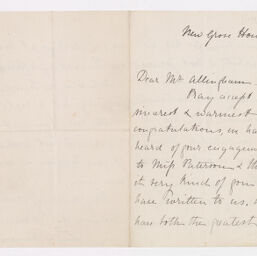 New Grove Hou
Dear Mr Allingham
Pray accept
sincerest & warmest
congratulations, in ha
heard of your engagem
to Miss Paterson & th
it very kind of you
have written to us.
have both the greatest